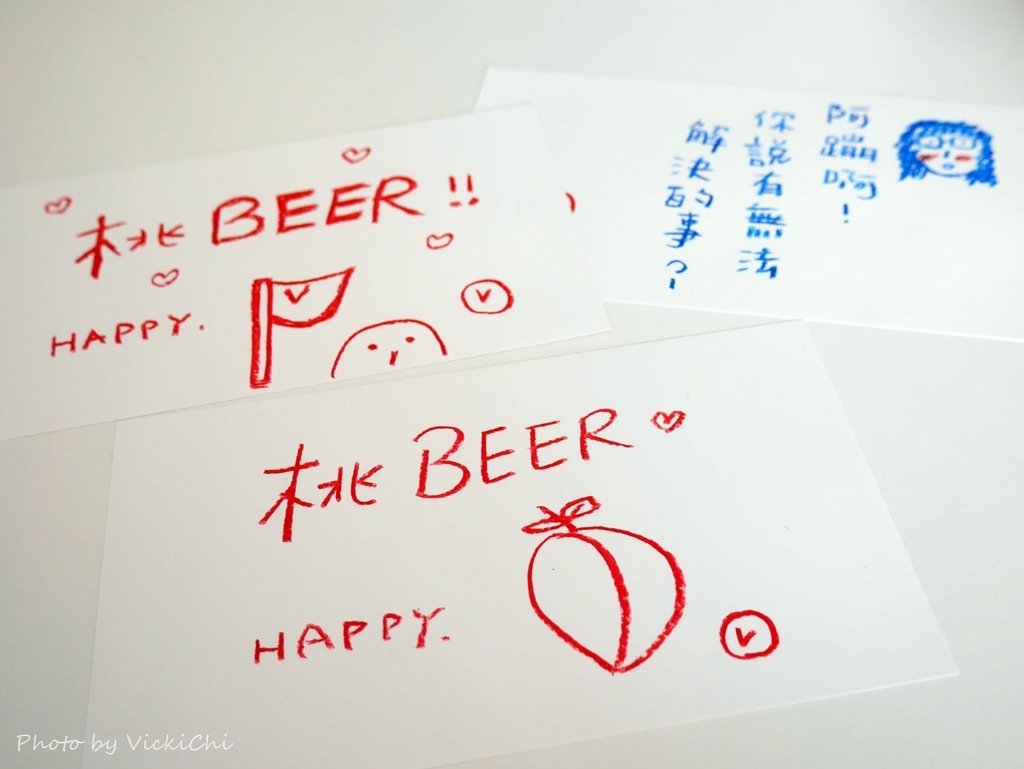 桃 BEER !!
HAPPY.
V
V
阿蹦啊！
你說有無法
解決的事？
桃 BEER
V
HAPPY.
V
Photo by VickiChi